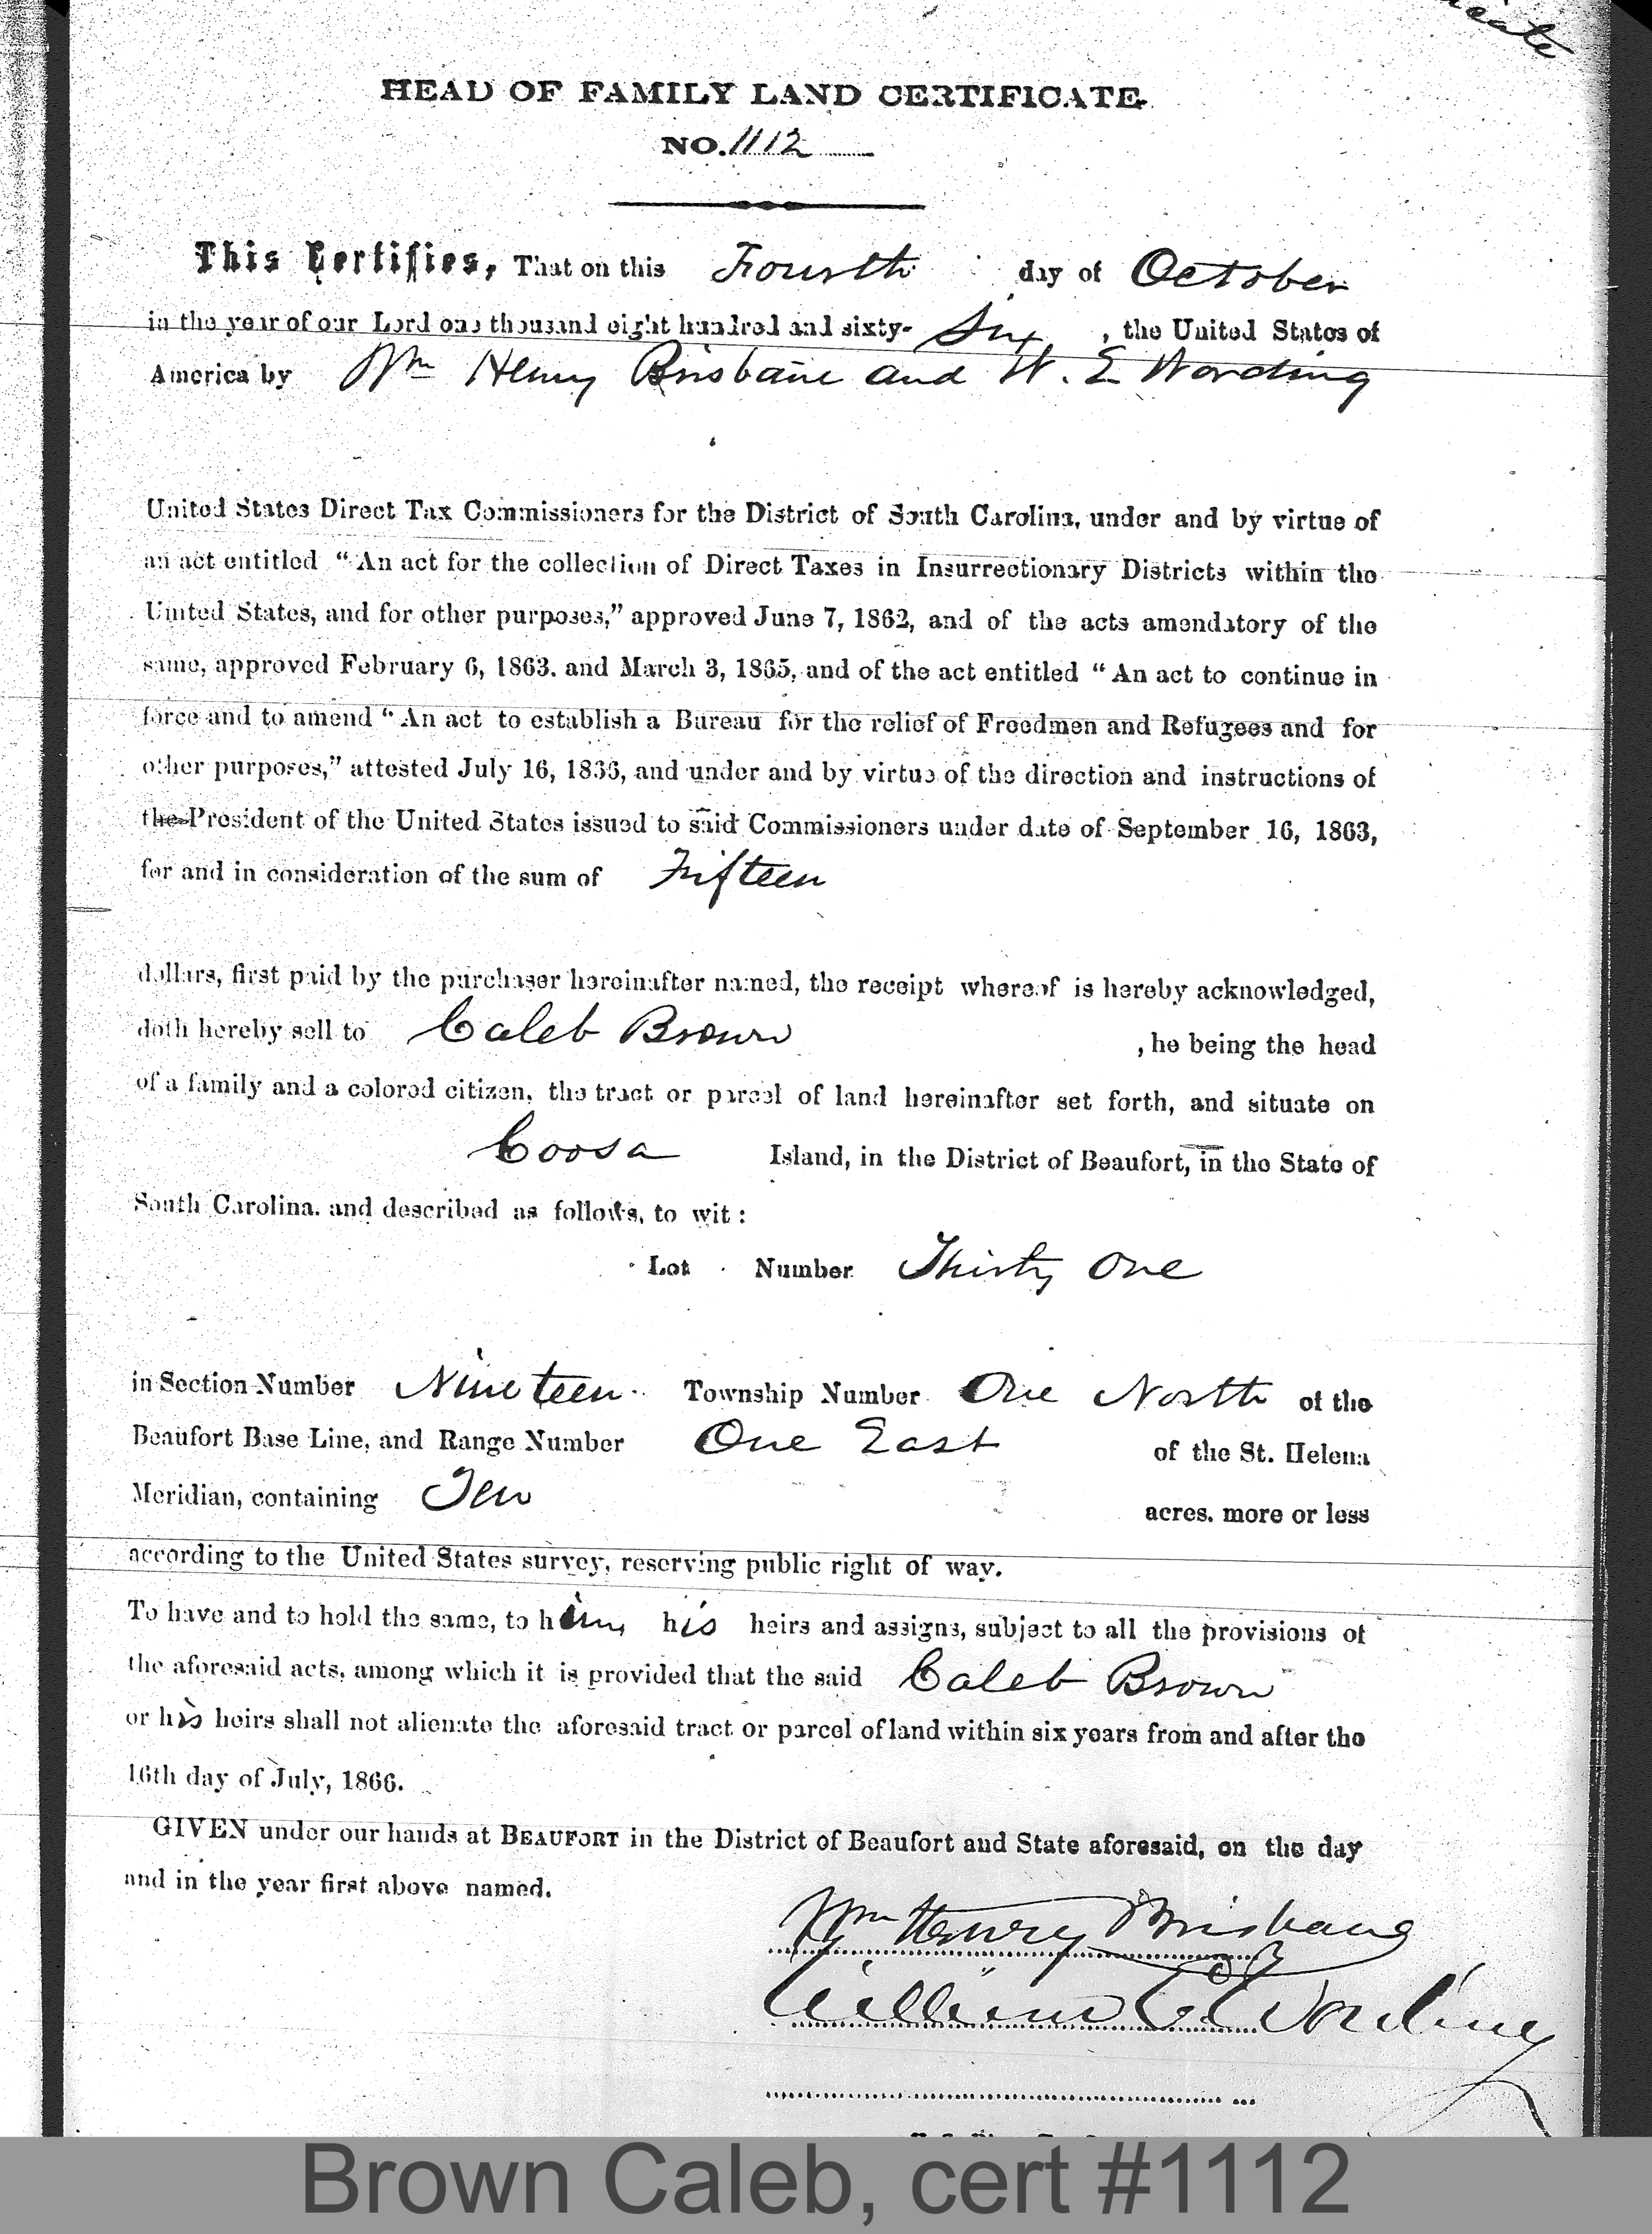 HEAD OF FAMILY LAND CERTIFICATE
NO. 1112
This Certifies, That on this Fourth day of October
in the year of our Lord one thousand eight hundred and sixty- Six, the United States of
America by Wm Henry Brisbane and W. E Wording
United States Direct Tax Commissioners for the District of South Carolina, under and by virtue of
an act entitled "An act for the collection of Direct Taxes in Insurrectionary Districts within the
United States, and for other purposes," approved June 7, 1862, and of the acts amendatory of the
same, approved February 6, 1863. and March 3, 1865, and of the act entitled "An act to continue in
force and to amend "An act to establish a Bureau for the relief of Freedmen and Refugees and for
other purposes," attested July 16, 1866, and under and by virtue of the direction and instructions of
the President of the United States issued to said Commissioners under date of September 16, 1863,
for and in consideration of the sum of Fifteen
dollars, first paid by the purchaser hereinafter named, the receipt whereof is hereby acknowledged,
doth hereby sell to Caleb Brown , he being the head
of a family and a colored citizen, the tract or parcel of land hereinafter set forth, and situate on
Coosa Island, in the District of Beaufort, in the State of
South Carolina. and described as follows, to wit:
Lot Number Thirty One
in Section Number Nineteen Township Number One North of the
Beaufort Base Line, and Range Number One East of the St. Helena
Meridian, containing Ten acres. more or less
according to the United States survey, reserving public right of way.
To have and to hold the same, to him, his heirs and assigns, subject to all the provisions of
the aforesaid acts, among which it is provided that the said Caleb Brown
or his heirs shall not alienate the aforesaid tract or parcel of land within six years from and after the
16th day of July, 1866.
GIVEN under our hands at BEAUFORT in the District of Beaufort and State aforesaid, on the day
and in the year first above named.
Wm Henry Brisbane
William E Wording
Brown Caleb, cert #1112